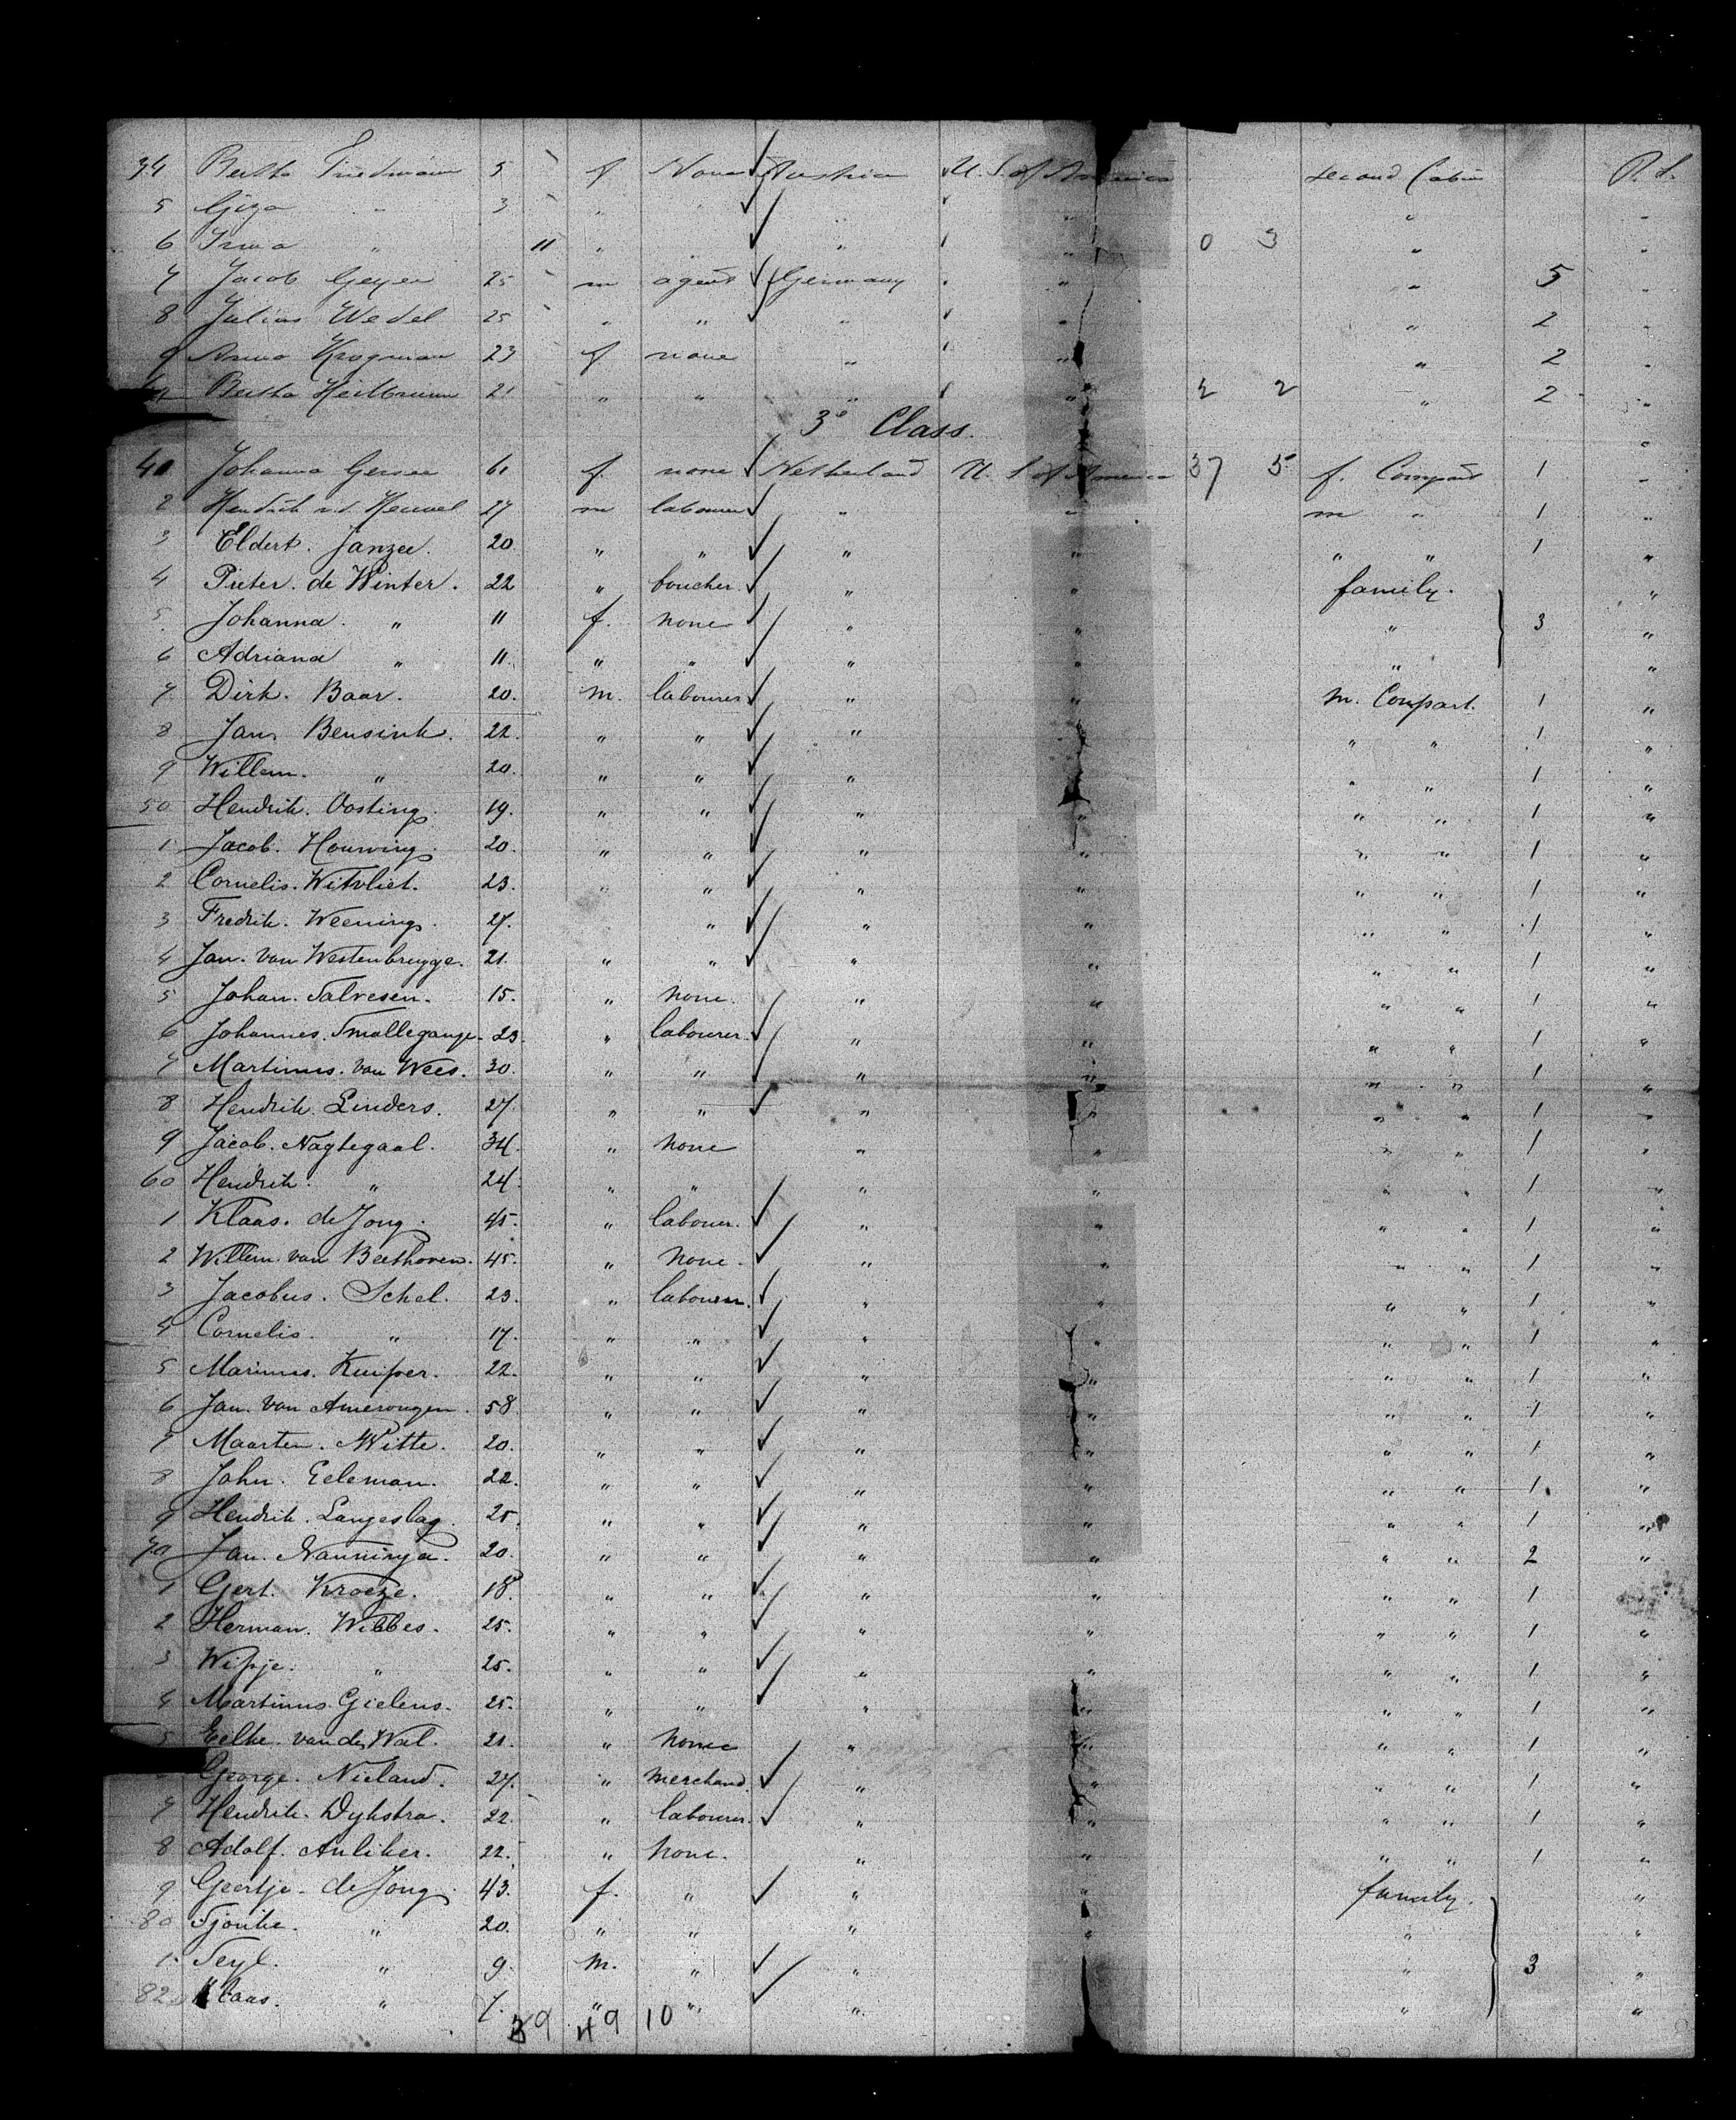 34 Bertha Friedmann 5 f None Austria U. S. of America Second Cabin P. S.
5 Giza " 3 " " " " "
6 Irma " 11 " " " 0 3 "
7 Jacob Geyer 25 m agent Germany " " 5
8 Julius Wedel 25 " " " " " 2
9 Anna Krogman 23 f none " " " 2
Bertha Heilbrunn 21 " " " " 2 2 " 2
3e Class.
41 Johanna Gersee 61 f. none Netherland U. S of America 37 5 f. Compart 1 "
2 Hendrik v.d. Heuvel 27 m labourer " " m " 1 "
3 Eldert. Janzee. 20 " " " " " " 1 "
4 Pieter. de Winter. 22 " boucher. " " family. "
5 Johanna. " 11 f. none " " " 3 "
6 Adriana " 11. " " " " " "
7 Dirk. Baar. 20. m. labourer " " m. Compart. 1 "
8 Jan. Bensink. 22. " " " " " " 1 "
9 Willem. " 20. " " " " " " 1 "
50 Hendrik. Oosting. 19. " " " " " " 1 "
1 Jacob. Houwing. 20. " " " " " " 1 "
2 Cornelis. Witvliet. 23. " " " " " " 1 "
3 Fredrik. Weening. 27. " " " " " 1 "
4 Jan. van Westenbrugge. 21. " " " " " " 1 "
5 Johan. Salvesen. 15. " none. " " " " 1 "
6 Johannes. Smallegange. 23. " labourer. " " " " 1 "
7 Martinus. van Wees. 30. " " " " " " 1 "
8 Hendrik. Linders. 27. " " " " " " 1 "
9 Jacob. Nagtegaal. 34. " none " " " " 1 "
60 Hendrik. " 24. " " " " " " 1 "
1 Klaas. de Jong. 45. " labouer. " " " " 1 "
2 Willem van Beethoven. 45. " none. " " " " 1 "
3 Jacobus. Schel. 23. " labourer. " " " " 1 "
4 Cornelis. " 17. " " " " " " 1 "
5 Marinus. Kuiper. 22. " " " " " " 1 "
6 Jan. van Amerongen. 58 " " " " " " 1 "
7 Maarten. Witte. 20. " " " " " " 1 "
8 John. Eeleman. 22. " " " " " " 1 "
9 Hendrik. Langeslag. 25. " " " " " " 1 "
70 Jan. Nanninga. 20. " " " " " " 2 "
1 Gert. Kroeze. 18. " " " " " " 1 "
2 Herman. Wibbes. 25. " " " " " " 1 "
3 Wipje. " 25. " " " " " " 1 "
4 Martinus. Gielens. 25. " " " " " " 1 "
5 Eelke. van der Wal. 21. " none " " " " 1 "
George. Nieland. 27. " merchand. " " " " 1 "
7 Hendrik. Dykstra. 22. " labourer. " " " " 1 "
8 Adolf. Anliker. 22. " none. " " " " 1 "
9 Geertje. de Jong. 43. f. " " " family. "
80 Tjouke. " 20. " " " " " "
1 Teyl. " 9. m. " " " 3 "
82 Klaas. " 7. " " " " "
39 49 10